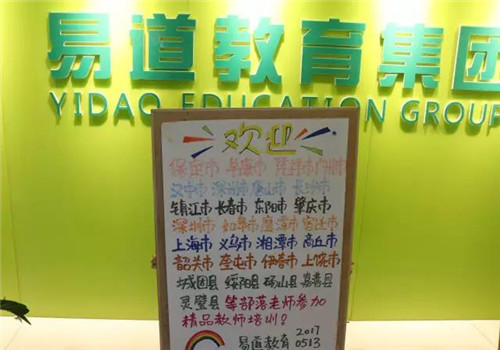 易道教育集团
YIDAO EDUCATION GROUP
欢迎
保定市 阜康市 凭祥市
汉中市 唐山市 长沙市
镇江市 长春市 东阳市 肇庆市
深圳市 如皋市 鹰潭市 宿迁市
上海市 义乌市 湘潭市 商丘市
奎屯市 伊春市 上饶市
城固县 绥阳县 砀山县 嘉善县
灵璧县 等部落老师参加
精品教师培训!
易道教育 2017
0513